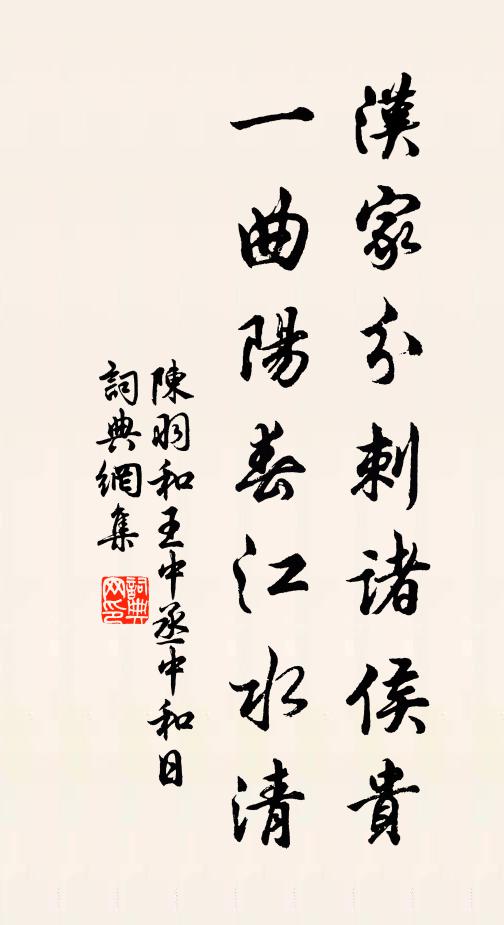 漢家分刺諸侯貴
一曲陽春江水清
陳羽和王中丞中和日
詞典網集
詞典網印